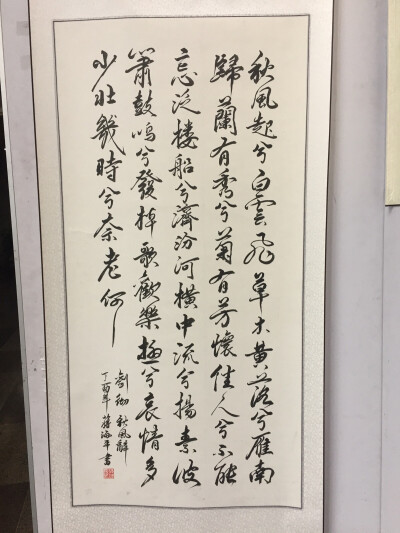 秋風起兮白雲飛草木黃落兮雁南
歸蘭有秀兮菊有芳懷佳人兮不能
忘泛楼船兮濟汾河橫中流兮揚素波
簫鼓鳴兮發棹歌歡樂極兮哀情多
少壯幾時兮奈老何
劉徹 秋風辭
丁酉年 海平書